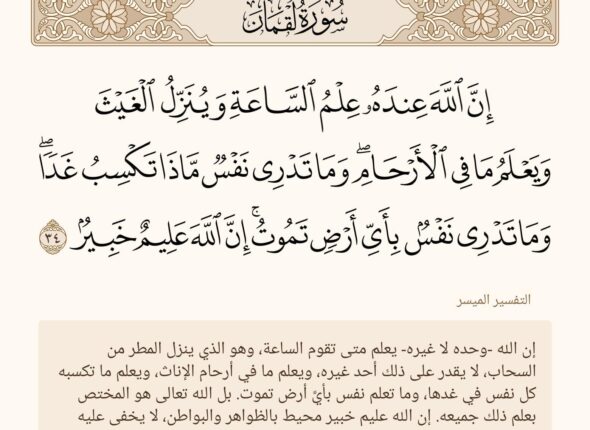 سُورَةُ لُقْمَان
إِنَّ ٱللَّهَ عِندَهُۥ عِلْمُ ٱلسَّاعَةِ وَيُنَزِّلُ ٱلْغَيْثَ
وَيَعْلَمُ مَا فِى ٱلْأَرْحَامِۖ وَمَا تَدْرِى نَفْسٌ مَّاذَا تَكْسِبُ غَدًاۖ
وَمَا تَدْرِى نَفْسٌۢ بِأَىِّ أَرْضٍ تَمُوتُۚ إِنَّ ٱللَّهَ عَلِيمٌ خَبِيرٌۢ ٣٤
التفسير الميسر
إن الله -وحده لا غيره- يعلم متى تقوم الساعة، وهو الذي ينزل المطر من
السحاب، لا يقدر على ذلك أحد غيره، ويعلم ما في أرحام الإناث، ويعلم ما تكسبه
كل نفس في غدها، وما تعلم نفس بأيِّ أرض تموت. بل الله تعالى هو المختص
بعلم ذلك جميعه. إن الله عليم خبير محيط بالظواهر والبواطن، لا يخفى عليه